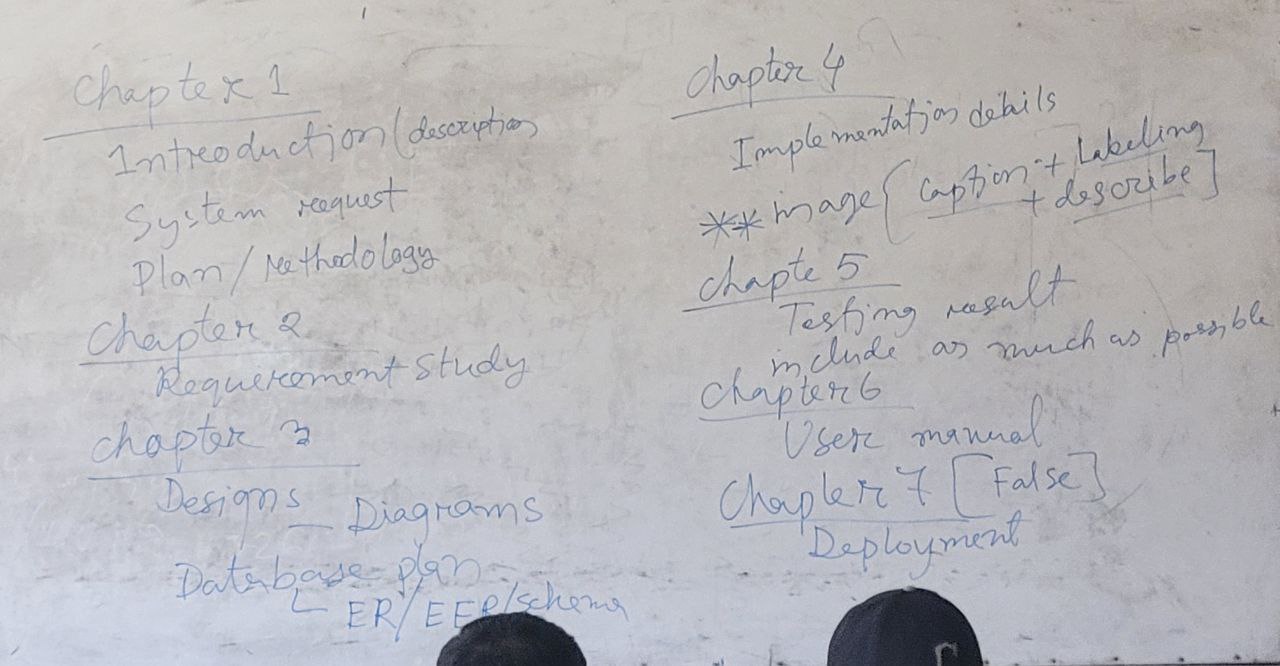 Chapter 1
Introduction (description
System request
Plan / Methodology
Chapter 2
Requirement Study
Chapter 3
Designs
— Diagrams
Database plan
ER/EER/schema
Chapter 4
Implementation details
** image [ Caption + Labeling
+ describe ]
Chapte 5
Testing result
include as much as possible
Chapter 6
User manual
Chapter 7 [ False ]
Deployment